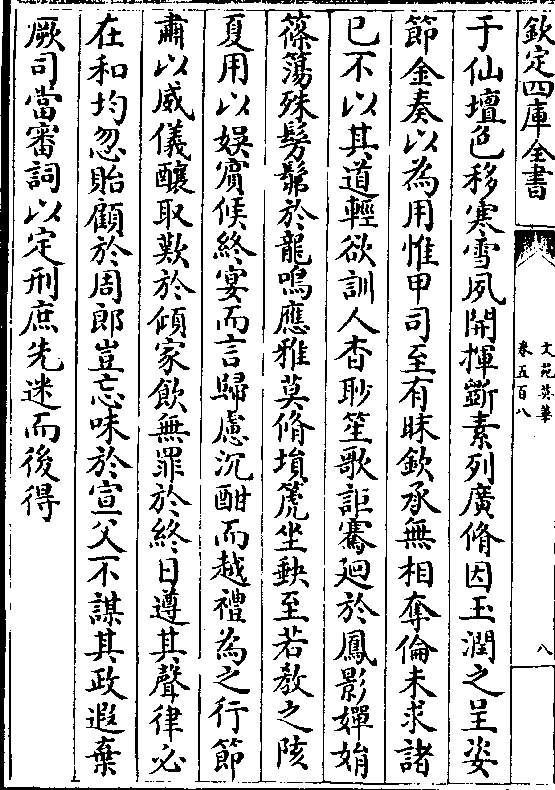 欽定四庫全書
文苑英華
卷五百八
八
于仙壇色移寒雪夙開揮斷素列廣脩因玉潤之呈姿
節金奏以為用惟甲司至有昧欽承無相奪倫未求諸
已不以其道輕欲訓人杳眇笙歌詎騫迴於鳳影嬋娟
篠簜殊髣髴於龍鳴應雅莫脩塤箎坐缺至若教之陔
夏用以娛賓候終宴而言歸慮沉酣而越禮為之行節
肅以威儀釀取歎於傾家飲無罪於終日遵其聲律必
在和均忽貽顧於周郎豈忘味於宣父不謀其政遐棄
厥司當審詞以定刑庶先迷而後得